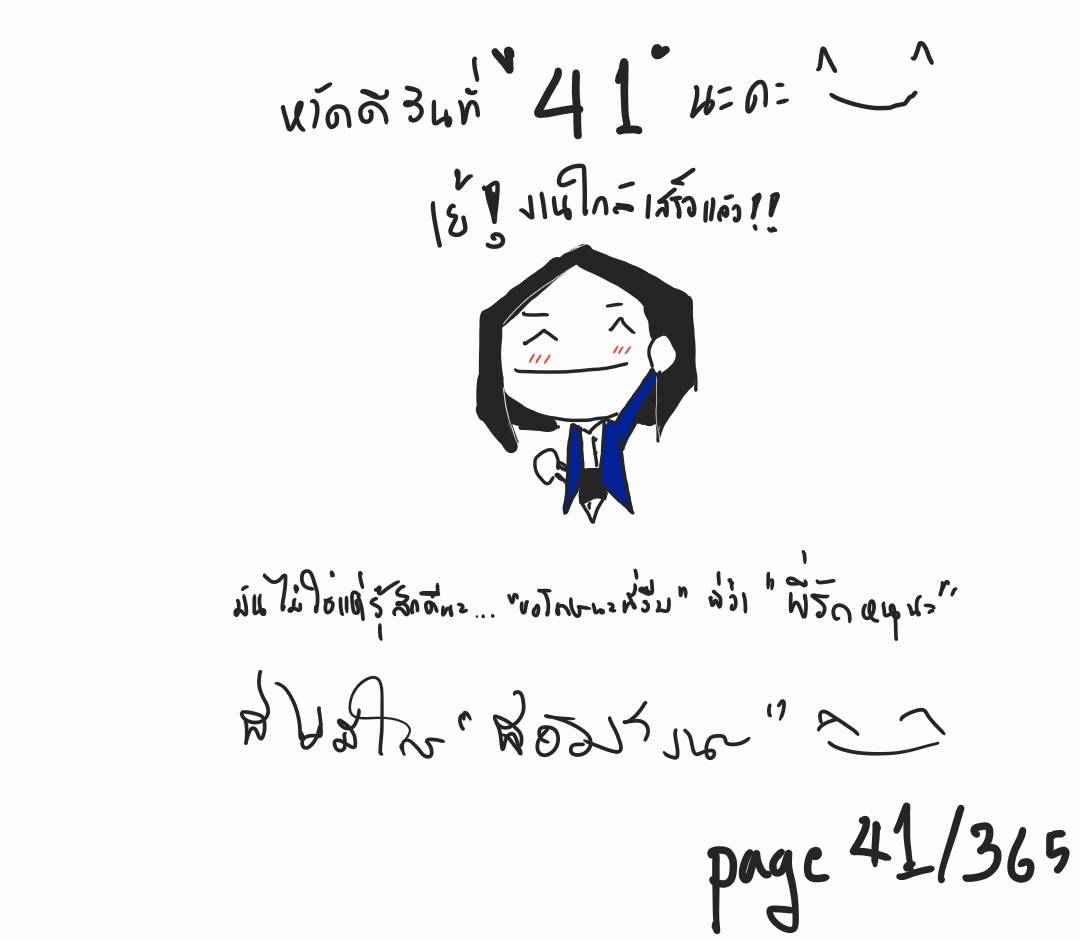 หวัดดีวันที่ "41" นะคะ
เย้! งานใกล้เสร็จแล้ว!!
มันไม่ใช่แค่รู้สึกดีหนะ... "ขอโทษนะที่รีบ" พี่ว่า "พี่รักหนูนะ"
page 41/365